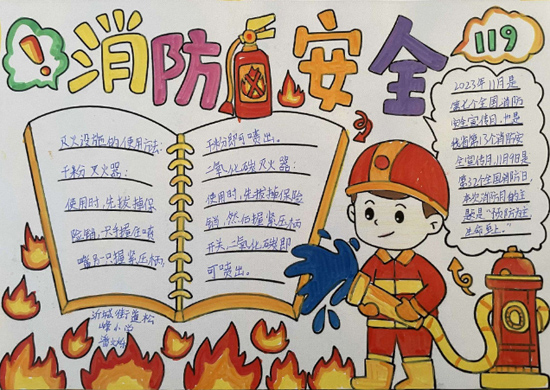 消防安全
119
灭火设施的使用方法:
干粉灭火器:
使用时,先拔掉保
险销,一只手握住喷
嘴另一只握紧压柄,
干粉即可喷出。
二氧化碳灭火器:
使用时,先拔掉保险
销,然后握紧压柄
开关,二氧化碳即
可喷出。
2023年11月是
全国消防
宣传月,也是
我省第13个消防安
全宣传月,11月9日是
第32个全国消防日,
本次消防月的主
题是“预防为主
生命至上。”
沂城街道松
峰小学